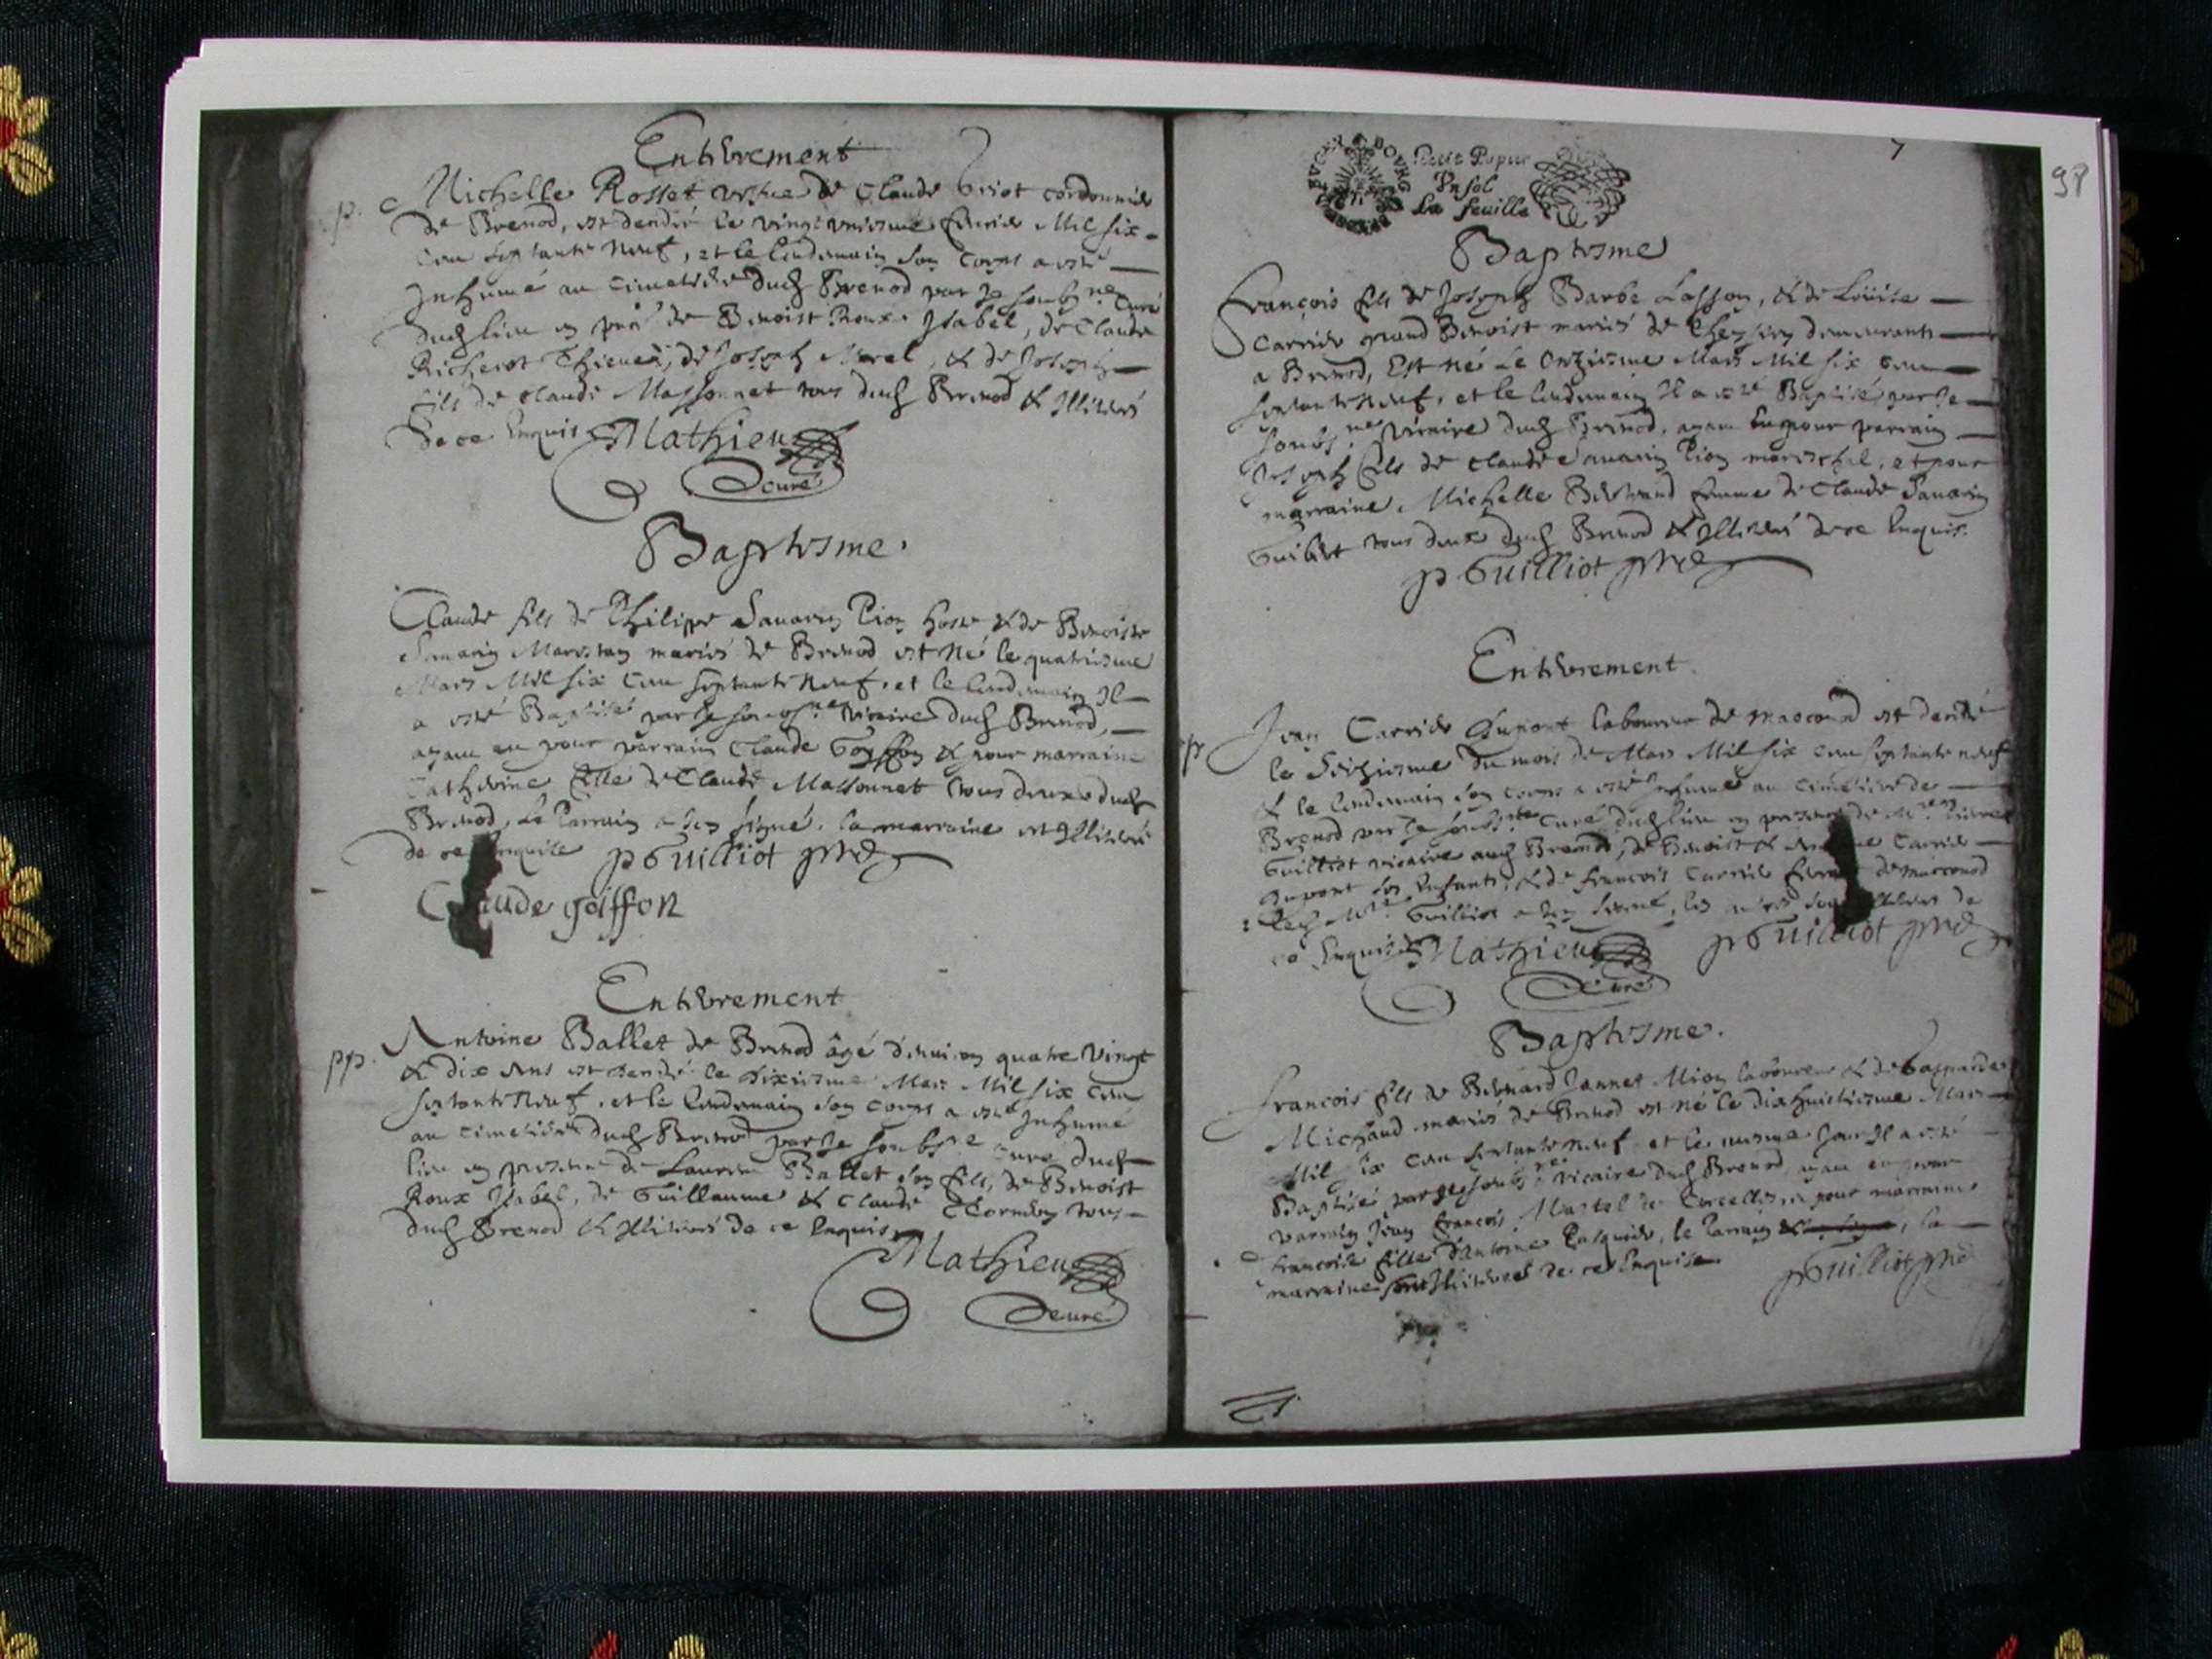 Enterrement
p. Michelle Rosset vefue de Claude cordonnier
de Brenod, est decedée le vingt uniesme feurier Mil six
cen septante neuf, et le lendemain son corps a esté
Inhumé au cimetiere dud Brenod par Je soubs.né Curé
dud lieu en pnce de Benoist Roux Isabel, de Claude
Richerot de Joseph Morel, & de Joseph
fils de Claude Massonnet tous dud Brenod & Illiterés
de ce Enquis Mathieu
Curé
Baptesme.
Claude fils de Philipe Sauarin Pion hoste & de Benoiste
Sauarin mariés de Brenod est né le quatriesme
Mars Mil six cen septante neuf, et le lendemain Il
a esté Baptisé par Je soubs.né vicaire dud Brenod,
ayant eu pour parrain Claude Goyffon & pour marraine
Catherine fille de Claude Massonnet tous deux dud
Brenod, Le Parrain a signé, la marraine est Illiterée
de ce Enquise pGuilliot pbre
Claude goiffon
Enterrement
pp. Antoine Ballet de Brenod âgé d'enuiron quatre vingt
& dix Ans est decedé le sixiesme Mars Mil six cen
septante neuf, et le lendemain son corps a esté Inhumé
au cimetiere dud Brenod par Je soubs.né curé dud
lieu en presence de Laurent Ballet son fils, de Benoist
Roux Isabel, de Guillaume & Claude tous
dud Brenod & Illiterés de ce Enquis
Mathieu
Curé
98
7
BOVRG
Petit Papier
Un sol
La feuille
Baptesme
François fils de Joseph Barbe Lasson, & de Loüise
Carrier grand Benoist mariés de demeurants
a Brenod, Est né Le Onziesme Mars Mil six cen
septante neuf, et le lendemain Il a esté Baptisé par Je
soubs.né vicaire dud Brenod, ayant Eu pour parrain
Joseph fils de Claude Sauarin Pion mareschal, et pour
marraine, Michelle Bertrand femme de Claude Sauarin
Guibert tous deux dud Brenod & Illiterés de ce Enquis.
pGuilliot pbre
Enterrement.
p Jean Carrier Dupont laboureur de macconod est decedé
le Seiziesme du mois de Mars Mil six cen septante neuf
& le lendemain son corps a esté Inhumé au cimetiere de
Brenod par Je soubs.né Curé dud lieu en presence de
Guilliot vicaire aud Brenod, de Benoist & Carrier
Dupont ses Enfants, & de François Carrier de macconod
led Guilliot a signé, les autres sont Illiterés de
ce Enquis Mathieu pGuilliot pbre
Curé
Baptesme.
francois fils de Bernard Jannet Mion laboureur & de Gasparde
Michaud mariés de Brenod est né le dixhuictiesme Mars
Mil six cen septante neuf et le mesme Jour Il a esté
Baptisé par Je soubs.né vicaire dud Brenod, ayant eu pour
parrain Jean francois Martel de Corcelles, & pour marraine
francoise fille d'Antoine Pasquier, le Parrain & la
marraine sont Illiteres de ce Enquise.
pGuilliot pbre